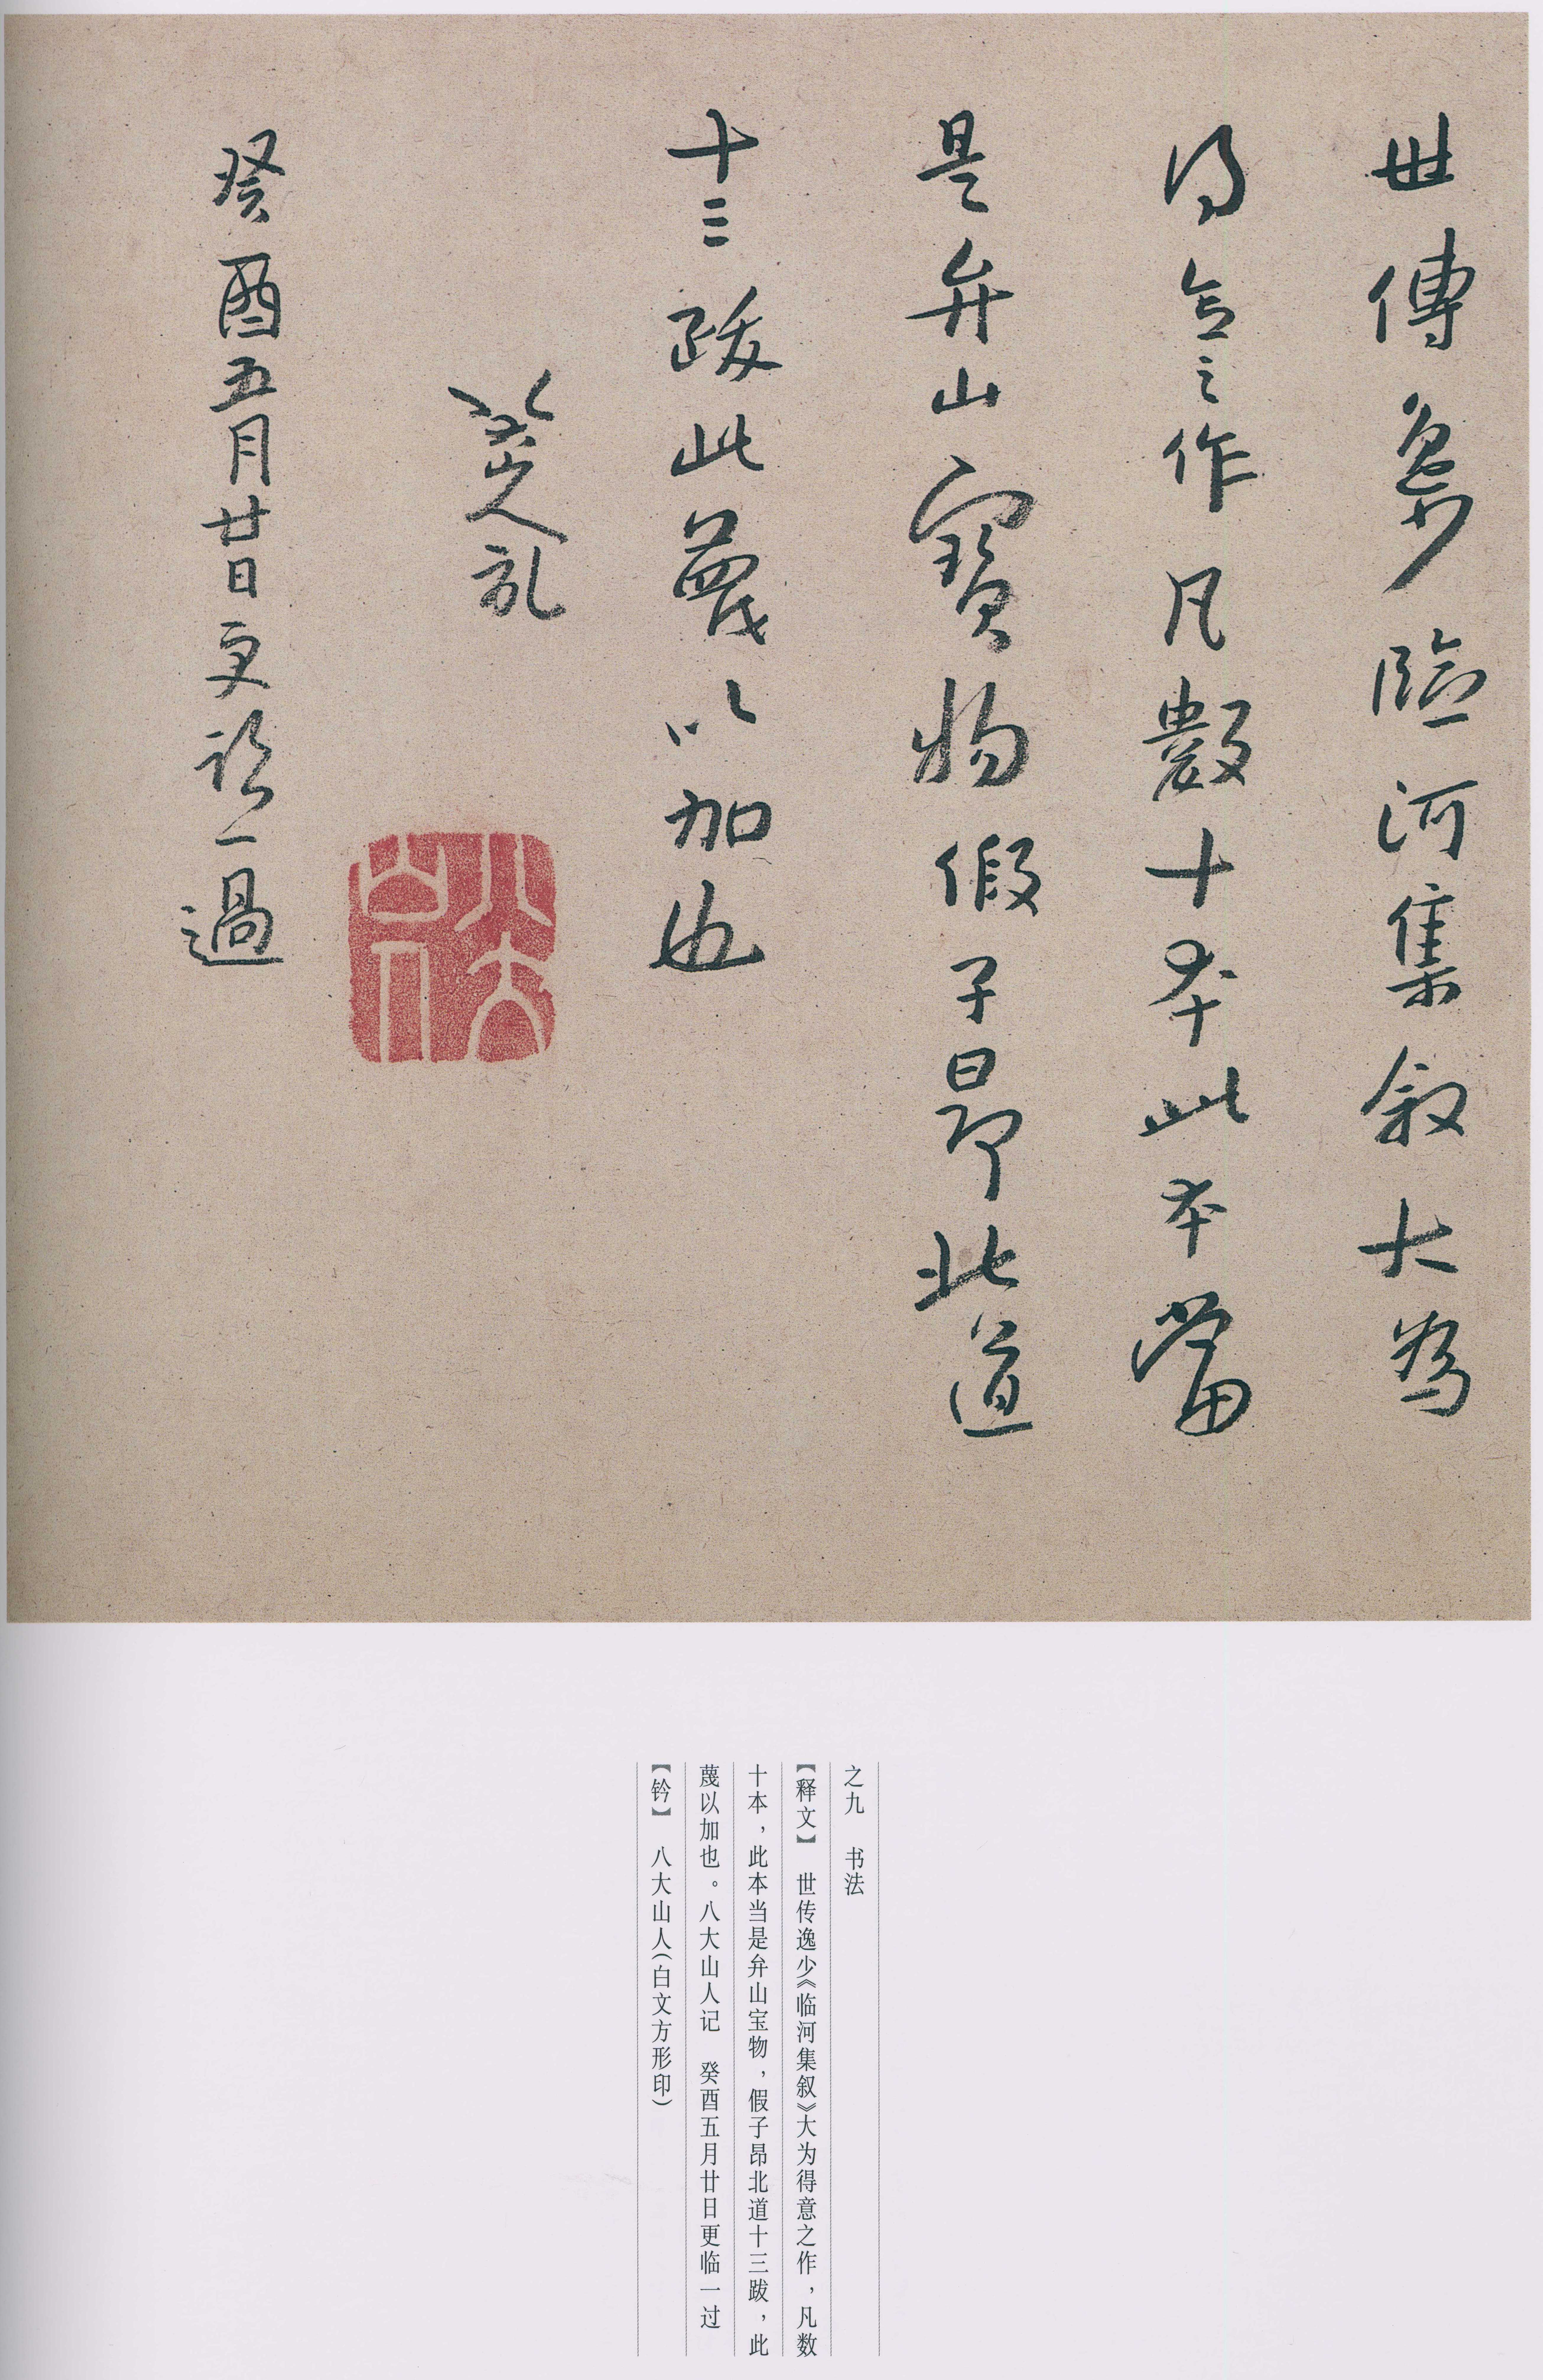 世傳逸少臨河集叙大為
得意之作凡數十本此本當
是弁山寶物假子昂北道
十三跋此蔑以加也
八大山人記
癸酉五月廿日更臨一過
八大山人
之九　书法
【释文】　世传逸少《临河集叙》大为得意之作，凡数
十本，此本当是弁山宝物，假子昂北道十三跋，此
蔑以加也。八大山人记　癸酉五月廿日更临一过
【钤】　八大山人（白文方形印）